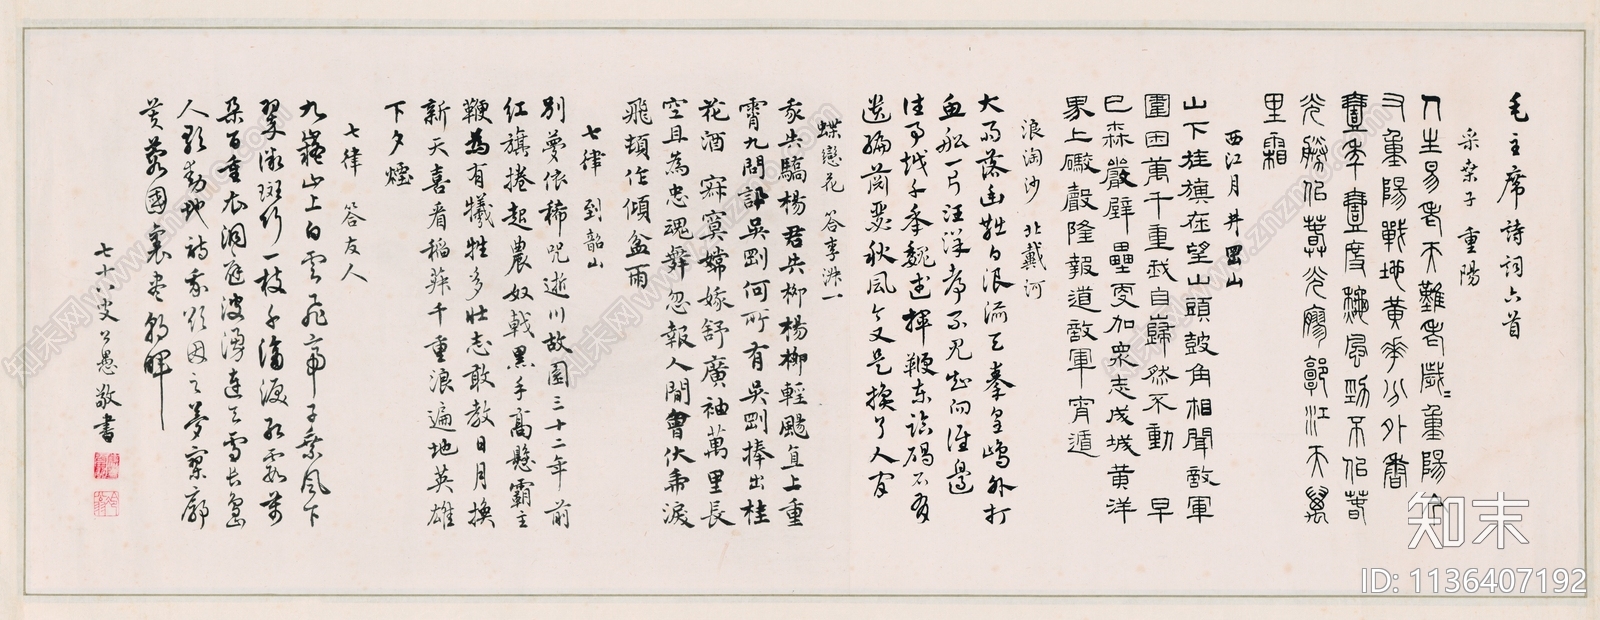 毛主席詩詞六首
采桑子 重陽
人生易老天難老歲〻重陽今
又重陽戰地黃花分外香
一年一度秋風勁不似春
光勝似春光寥郭江天萬
里霜
西江月 井岡山
山下旌旗在望山頭鼓角相聞敵軍
圍困萬千重我自巋然不動 早
已森嚴壁壘更加衆志成城黃洋
界上礮聲隆報道敵軍宵遁
浪淘沙 北戴河
大雨落幽燕白浪滔天秦皇島外打
魚船一片汪洋都不見知向誰邊
往事越千年魏武揮鞭東臨碣石有
遺編蕭瑟秋風今又是換了人间
蝶戀花 答李淑一
我失驕楊君失柳楊柳輕颺直上重
霄九問訊吳剛何所有吳剛捧出桂
花酒 寂寞嫦娥舒廣袖萬里長
空且為忠魂舞忽報人間曾伏虎淚
飛頓作傾盆雨
七律 到韶山
別夢依稀咒逝川故園三十二年前
紅旗捲起農奴戟黑手高懸霸主
鞭為有犧牲多壯志敢教日月換
新天喜看稻菽千重浪遍地英雄
下夕煙
七律 答友人
九嶷山上白雲飛帝子乘風下
翠微斑竹一枝千滴淚紅霞萬
朵百重衣洞庭波湧連天雪長島
人歌動地詩我欲因之夢寥廓
芙蓉國裏盡朝暉
七十八叟公愚敬書
知末
ID: 1136407192
知末网www.znzmo.com